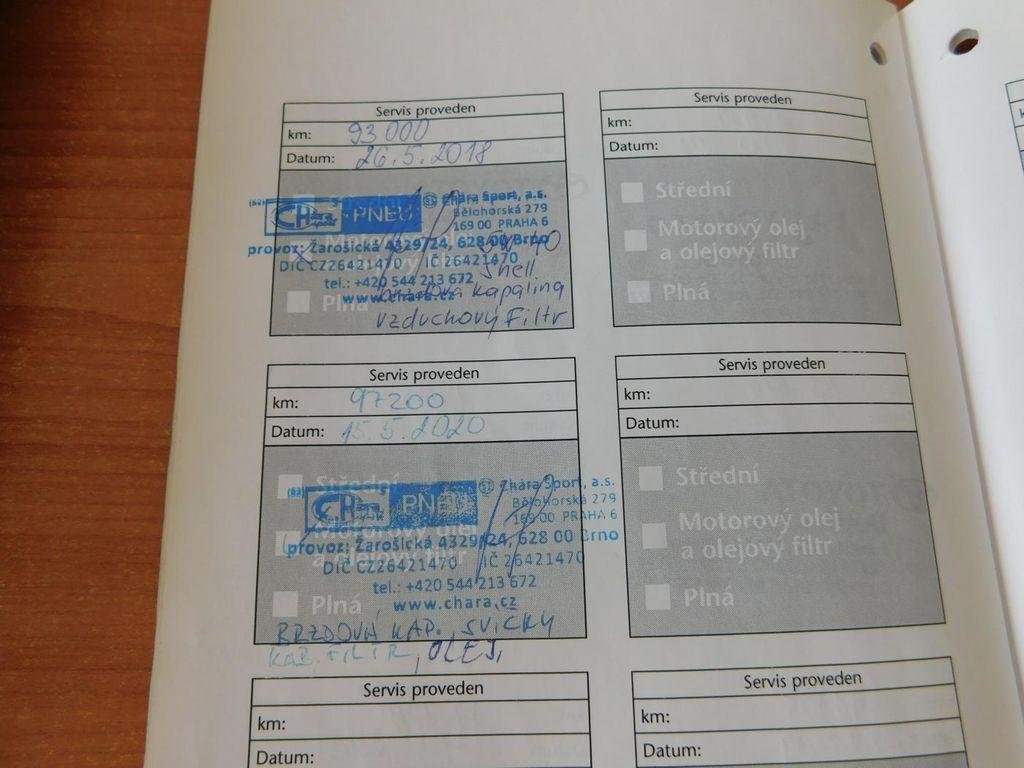 Servis proveden
km: 93 000
Datum: 26.5.2018
CHára PNEU
Chára Sport, a.s.
Bělohorská 279
169 00 PRAHA 6
provoz: Žarošická 4329/24, 628 00 Brno
DIČ CZ26421470 IČ 26421470
tel.: +420 544 213 672
www.chara.cz
Shell
brzdová kapalina
vzduchový Filtr
Servis proveden
km:
Datum:
Střední
Motorový olej
a olejový filtr
Plná
Servis proveden
km: 97200
Datum: 15.5.2020
Střední
PNEU
Chára Sport, a.s.
Bělohorská 279
169 00 PRAHA 6
provoz: Žarošická 4329/24, 628 00 Brno
a olejový filtr
DIČ CZ26421470 IČ 26421470
tel.: +420 544 213 672
www.chara.cz
Plná
BRZDOVÁ KAP. SVÍČKY
KAB. FILTR, OLEJ,
Servis proveden
km:
Datum:
Střední
Motorový olej
a olejový filtr
Plná
Servis proveden
km:
Datum:
Servis proveden
km:
Datum: